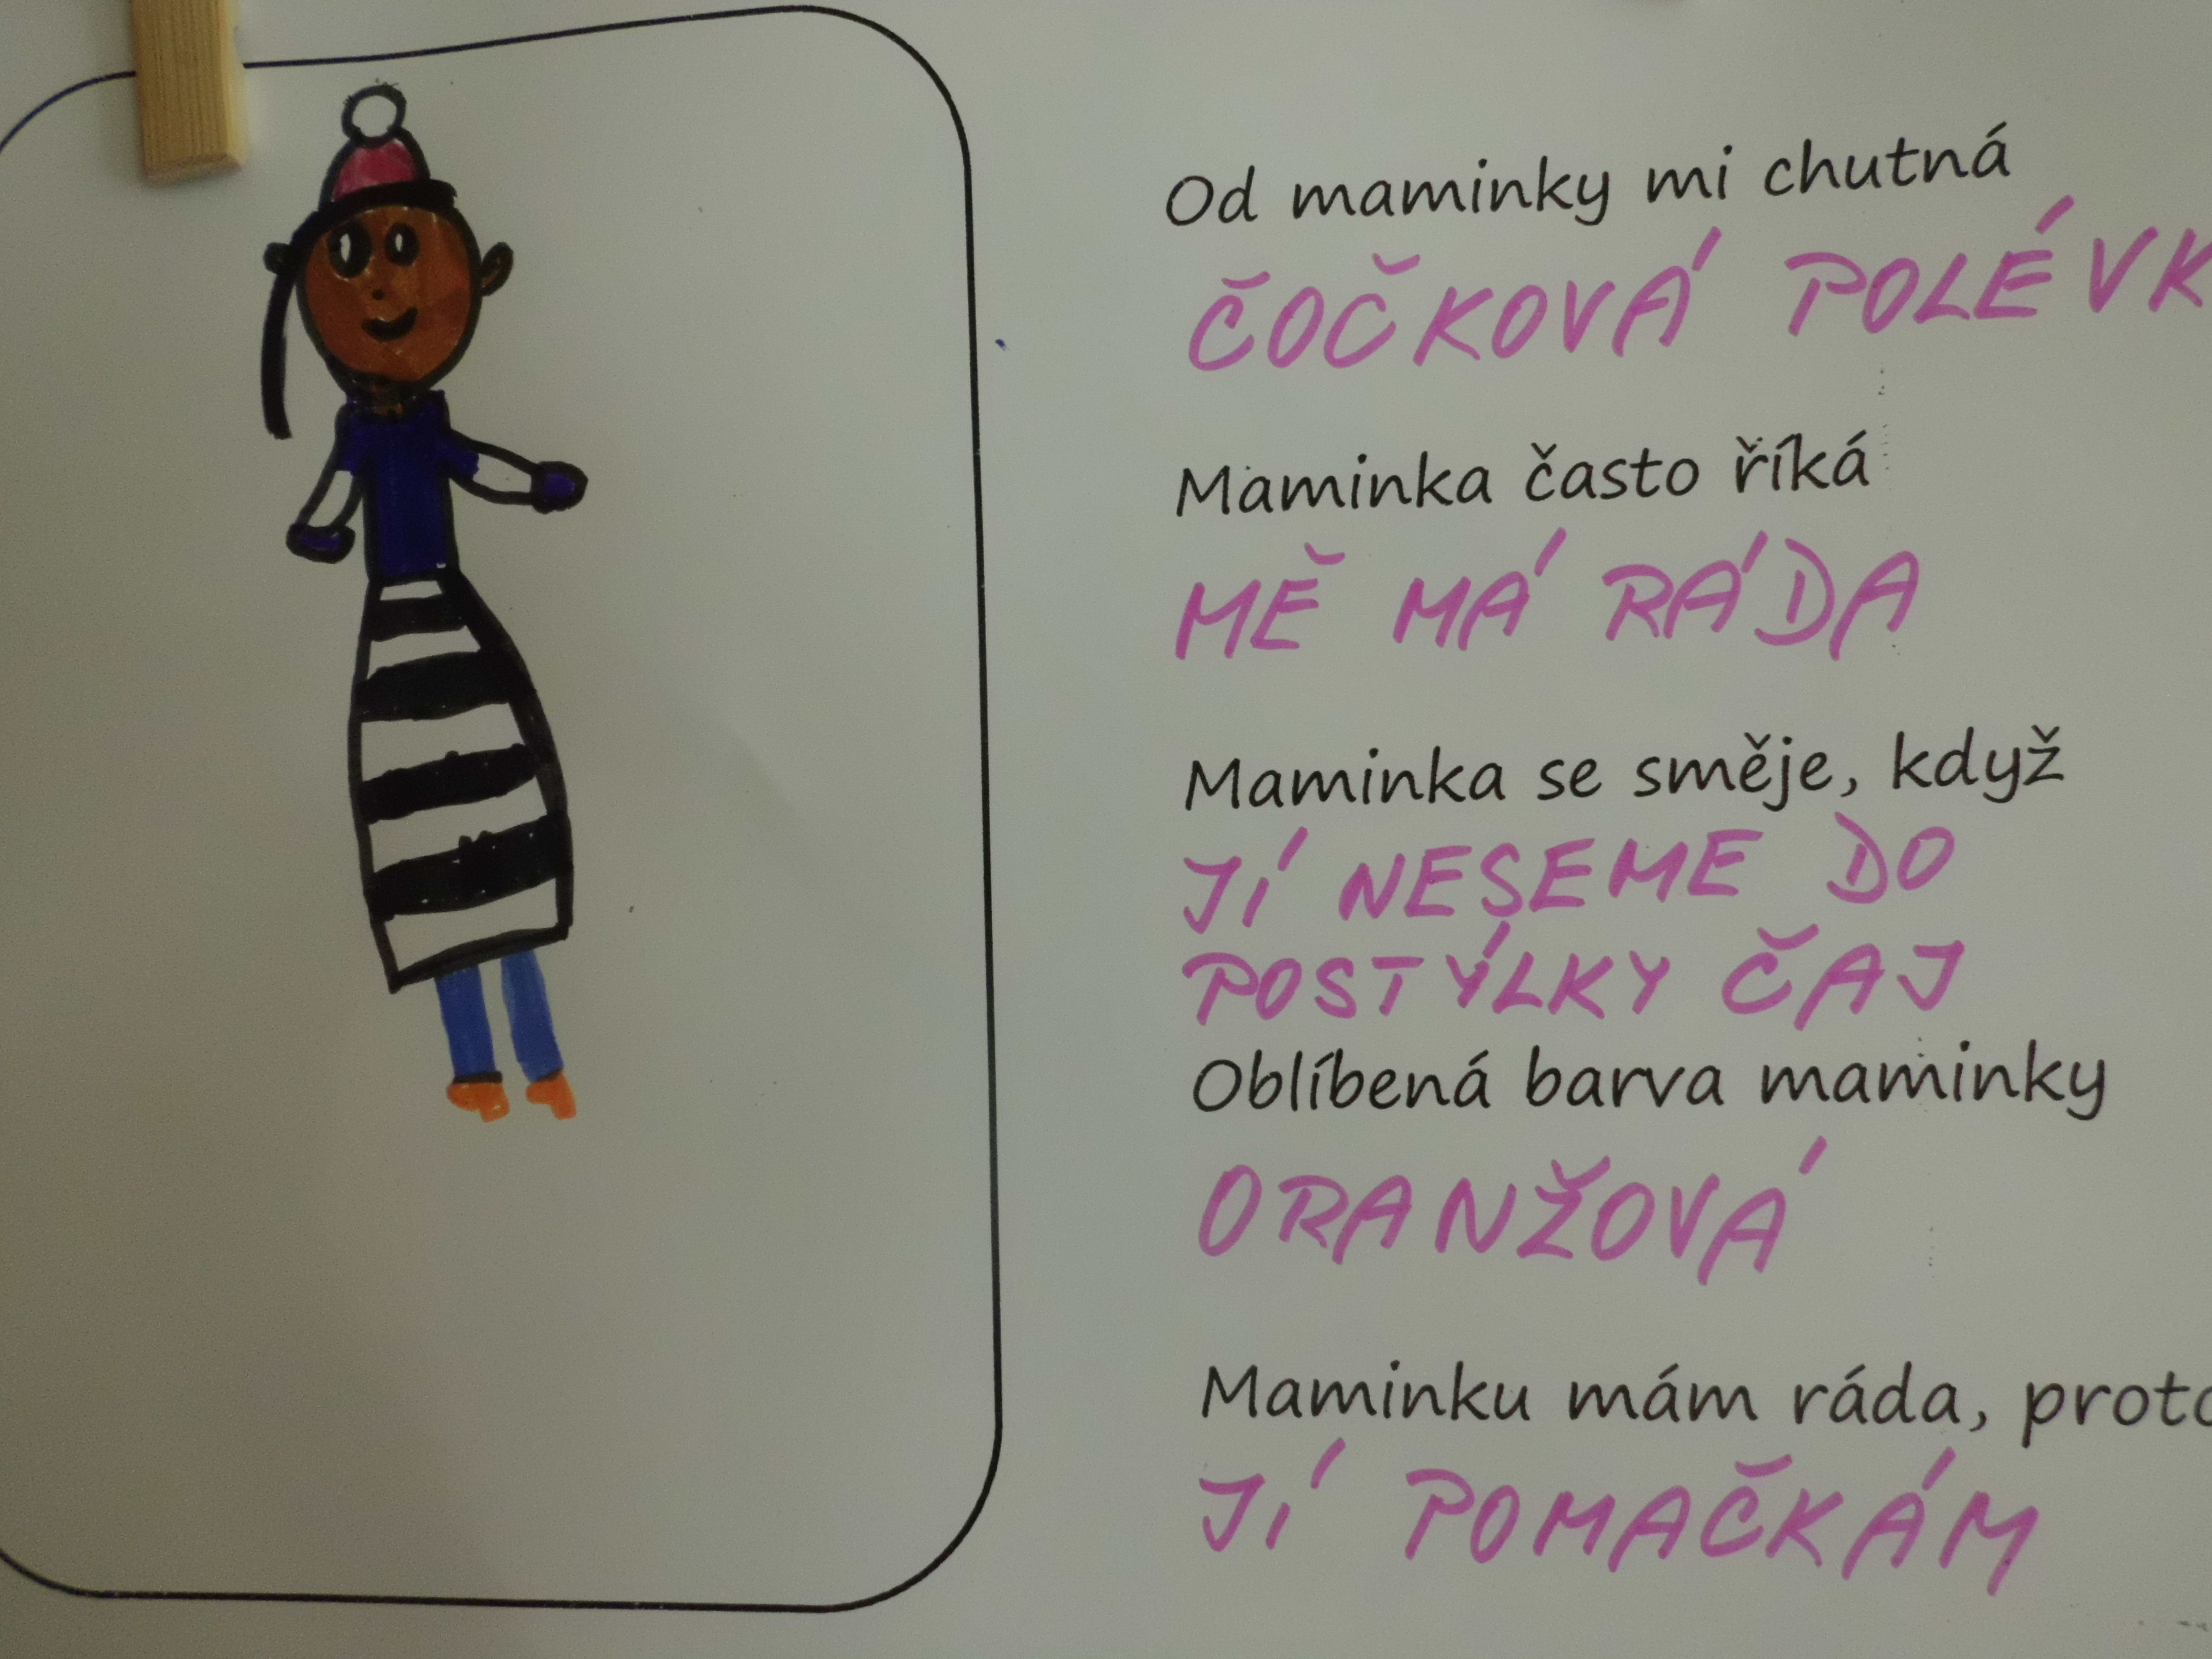 Od maminky mi chutná
ČOČKOVÁ POLÉVK
Maminka často říká
MĚ MÁ RÁDA
Maminka se směje, když
JÍ NESEME DO
POSTÝLKY ČAJ
Oblíbená barva maminky
ORANŽOVÁ
Maminku mám ráda, proto
JÍ POMAČKÁM